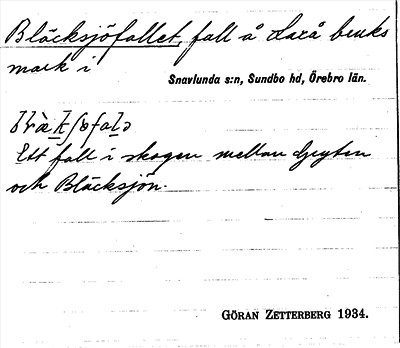 Bläcksjöfallet, fall å Laxå bruks
mark i
Snavlunda s:n, Sundbo hd, Örebro län.
Ett fall i skogen mellan
och Bläcksjön.
GÖRAN ZETTERBERG 1934.